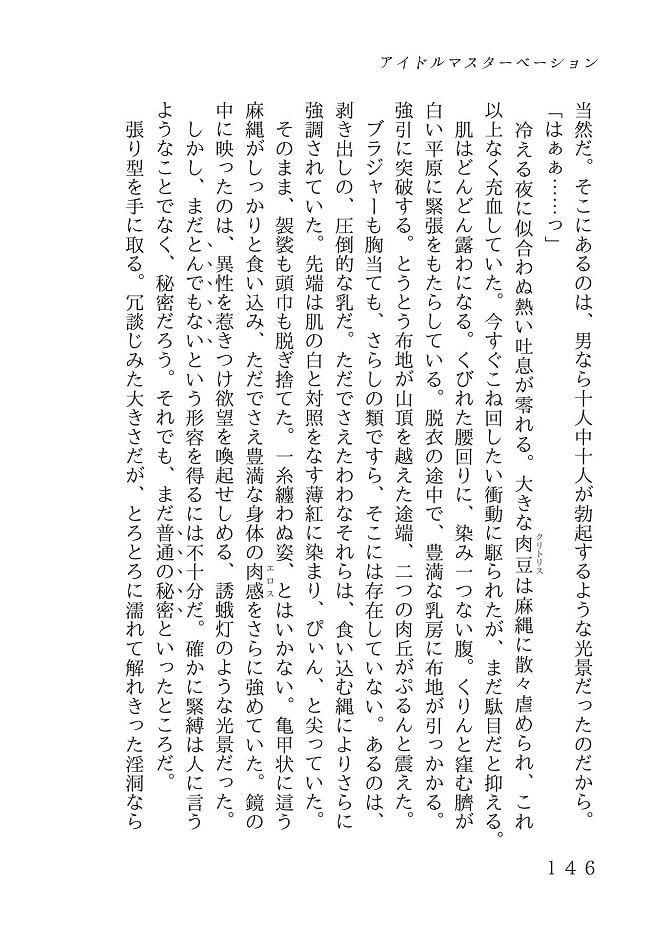 アイドルマスターベーション
当然だ。そこにあるのは、男なら十人中十人が勃起するような光景だったのだから。
「はぁぁ……っ」
冷える夜に似合わぬ熱い吐息が零れる。大きな肉豆クリトリスは麻縄に散々虐められ、これ
以上なく充血していた。今すぐこね回したい衝動に駆られたが、まだ駄目だと抑える。
肌はどんどん露わになる。くびれた腰回りに、染み一つない腹。くりんと窪む臍が
白い平原に緊張をもたらしている。脱衣の途中で、豊満な乳房に布地が引っかかる。
強引に突破する。とうとう布地が山頂を越えた途端、二つの肉丘がぷるんと震えた。
ブラジャーも胸当ても、さらしの類ですら、そこには存在していない。あるのは、
剥き出しの、圧倒的な乳だ。ただでさえたわわなそれらは、食い込む縄によりさらに
強調されていた。先端は肌の白と対照をなす薄紅に染まり、ぴぃん、と尖っていた。
そのまま、袈裟も頭巾も脱ぎ捨てた。一糸纏わぬ姿、とはいかない。亀甲状に這う
麻縄がしっかりと食い込み、ただでさえ豊満な身体の肉感エロスをさらに強めていた。鏡の
中に映ったのは、異性を惹きつけ欲望を喚起せしめる、誘蛾灯のような光景だった。
しかし、まだとんでもないという形容を得るには不十分だ。確かに緊縛は人に言う
ようなことでなく、秘密だろう。それでも、まだ普通の秘密といったところだ。
張り型を手に取る。冗談じみた大きさだが、とろとろに濡れて解れきった淫洞なら
146